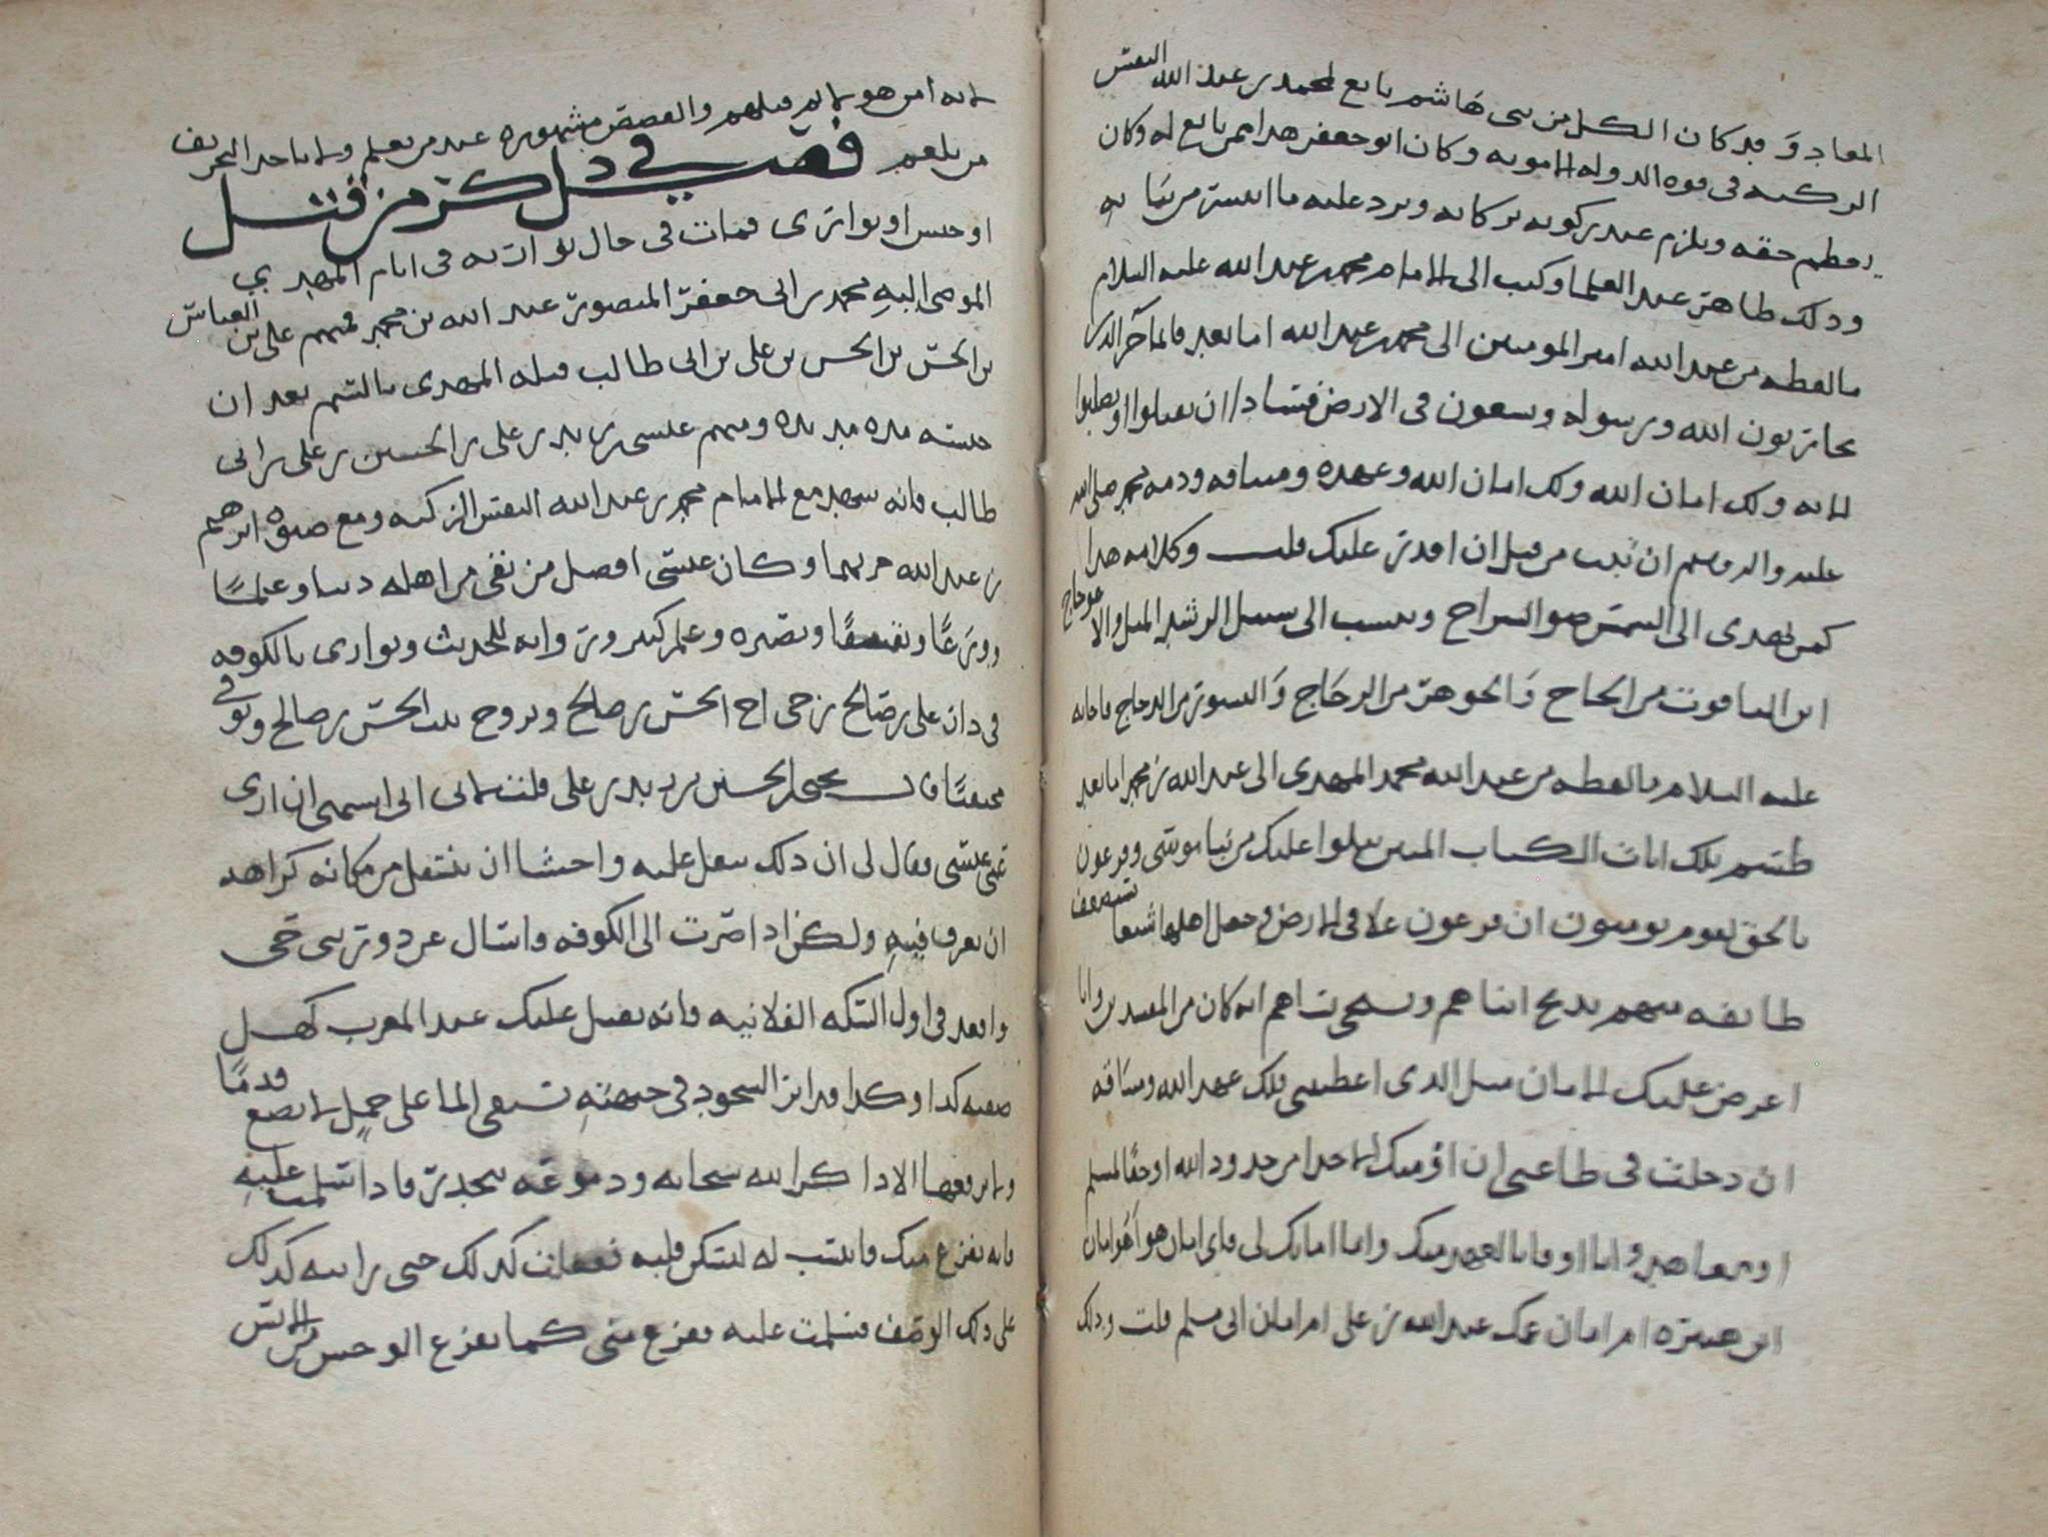 المعاد و قد كان الكل من بني هاشم بايع لمحمد بن عبد الله النفس
الزكيه في قوه الدوله الاامويه وكان ابو جعفر هذا ممن بايع له وكان
يعظم حقه ويلزم عند ركوبه بركابه ويرد عليه ما انتشر من ثيابه
وذلك ظاهر عند العلما وكتب الى الامام محمد بن عبد الله عليه السلام
ما لفظه من عبد الله امير المومنين الى محمد بن عبد الله اما بعد فانما جزا الذين
يحاربون الله ورسوله ويسعون في الارض فسادا ان يقتلوا او يصلبوا
الايه ولك امان الله ولك امان الله وعهده وميثاقه وذمه محمد صلى الله
عليه واله وسلم ان تبت من قبل ان اقدر عليك قلت وكلامه هذا
كمن يهدي الى الشمس ضو السراج وينسب الى سبيل الرشد الميل والاعوجاج
اين الياقوت من الجاج والجوهر من الزجاج والنسور من الدجاج فاجابه
عليه السلام ما لفظه من عبد الله محمد المهدي الى عبد الله بن محمد اما بعد
طسم تلك ايات الكتاب المبين نتلوا عليك من نبا موسى وفرعون
بالحق لقوم يومنون ان فرعون علا في الارض وجعل اهلها شيعا يستضعف
طايفه منهم يذبح ابناهم ويستحي نساهم انه كان من المفسدين وانا
اعرض عليك الامان مثل الذي اعطيتني فلك عهد الله وميثاقه
ان دخلت في طاعتي ان اؤمنك الا حدا من حدود الله او حقا لمسلم
او معاهد وانا اوفا بالعهد منك واما امانك لي فاي امان هو اهو امان
ابن هبيره ام امان عمك عبد الله بن علي ام امان ابي مسلم قلت وذلك
لانه امن هولا ثم قتلهم والقصص مشهوره عند من يعلم ولا ياخذ التحريف
من يلعم فصل في ذكر من قتل
او حبس او توارى فمات في حال تواريه في ايام المهدي
الموصى اليه محمد بن ابي جعفر المنصور عبد الله بن محمد فمنهم علي بن العباس
بن الحسن بن الحسن بن علي بن ابي طالب قتله المهدي بالسم بعد ان
حبسه مده مديده ومنهم عيسى بن زيد بن علي بن الحسين بن علي بن ابي
طالب فانه شهد مع الامام محمد بن عبد الله النفس الزكيه ومع صنوه ابرهيم
بن عبد الله حربهما وكان عيسى افضل من بقي من اهله دينا وعلمًا
وورعًا وتقشفًا وبصيره وعلم كثير وروايه للحديث وتوارى بالكوفه
في دار علي بن صالح بن حي اخ الحسن بن صالح وتزوج بنت الحسن بن صالح وتوفي
مختفيًا قال يحيى بن الحسين بن زيد بن علي قلت لابي اني اشتهي ان ارى
عمي عيسى فقال لي ان ذلك يثقل عليه واخشا ان ينتقل من مكانه كراهه
ان يعرف فيه ولكن اذا صرت الى الكوفه واسال عن دور بني حي
واقعد في اول السكه الفلانيه فانه يقبل عليك عند المغرب كهل
صفته كذا وكذا قد اثر السجود في جبهته يستقي الما على جمل لا يضع قدمًا
ولا يرفعها الا ذاكر الله سبحانه ودموعه تنحدر فاذا سلمت عليه
فانه يفزع منك فانتسب له ليسكن قلبه ففعلت كذلك حتى رايته كذلك
على ذلك الوصف فسلمت عليه ففزع مني كما يفزع الوحش من الانس